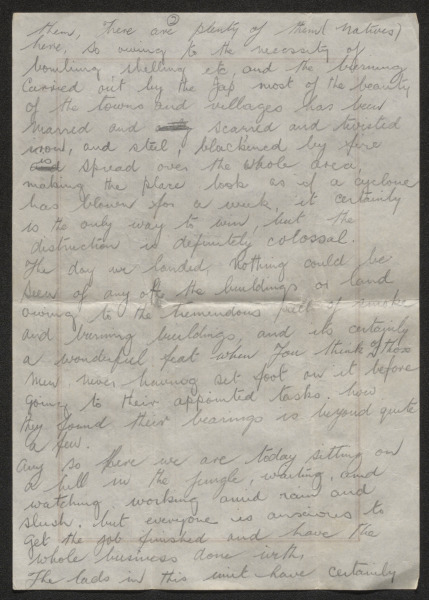 ②
them, There are plenty of them (natives)
here, so owing to the necessity of
bombing, shelling etc, and the burning
carried out by the Jap most of the beauty
of the towns and villages has been
marred and scarred and twisted
iron, and steel, blackened by fire
is spread over the whole area,
making the place look as if a cyclone
has blown for a week, it certainly
is the only way to win, but the
distruction is definitely colossal.
The day we landed, nothing could be
seen of any of the buildings or land
owing to the tremendous pall of smoke
and burning buildings, and its certainly
a wonderful feat when you think of those
men never having set foot on it before
going to their appointed tasks. how
they found their bearings is beyond quite
a few.
Any so here we are today sitting on
a hill in the jungle, waiting, and
watching. working amid rain and
slush, but everyone is anxious to
get the job finished and have the
whole business done with,
The lads in this unit have certainly